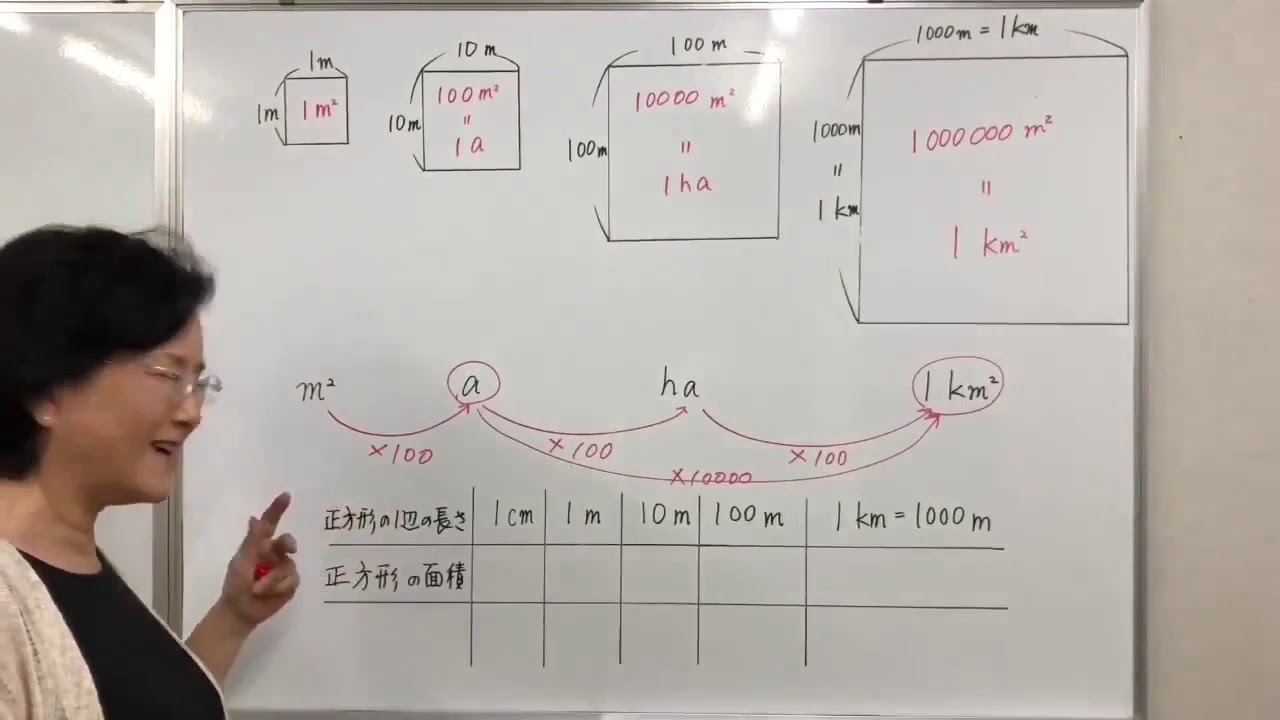 1m
1m
1m²
10m
10m
100m²
=
1a
100m
100m
10000 m²
=
1ha
1000m = 1km
1000m
=
1 km
1000000 m²
=
1 km²
m² a ha 1 km²
×100 ×100 ×100
×10000
正方形の1辺の長さ 1cm 1m 10m 100m 1km = 1000m
正方形の面積